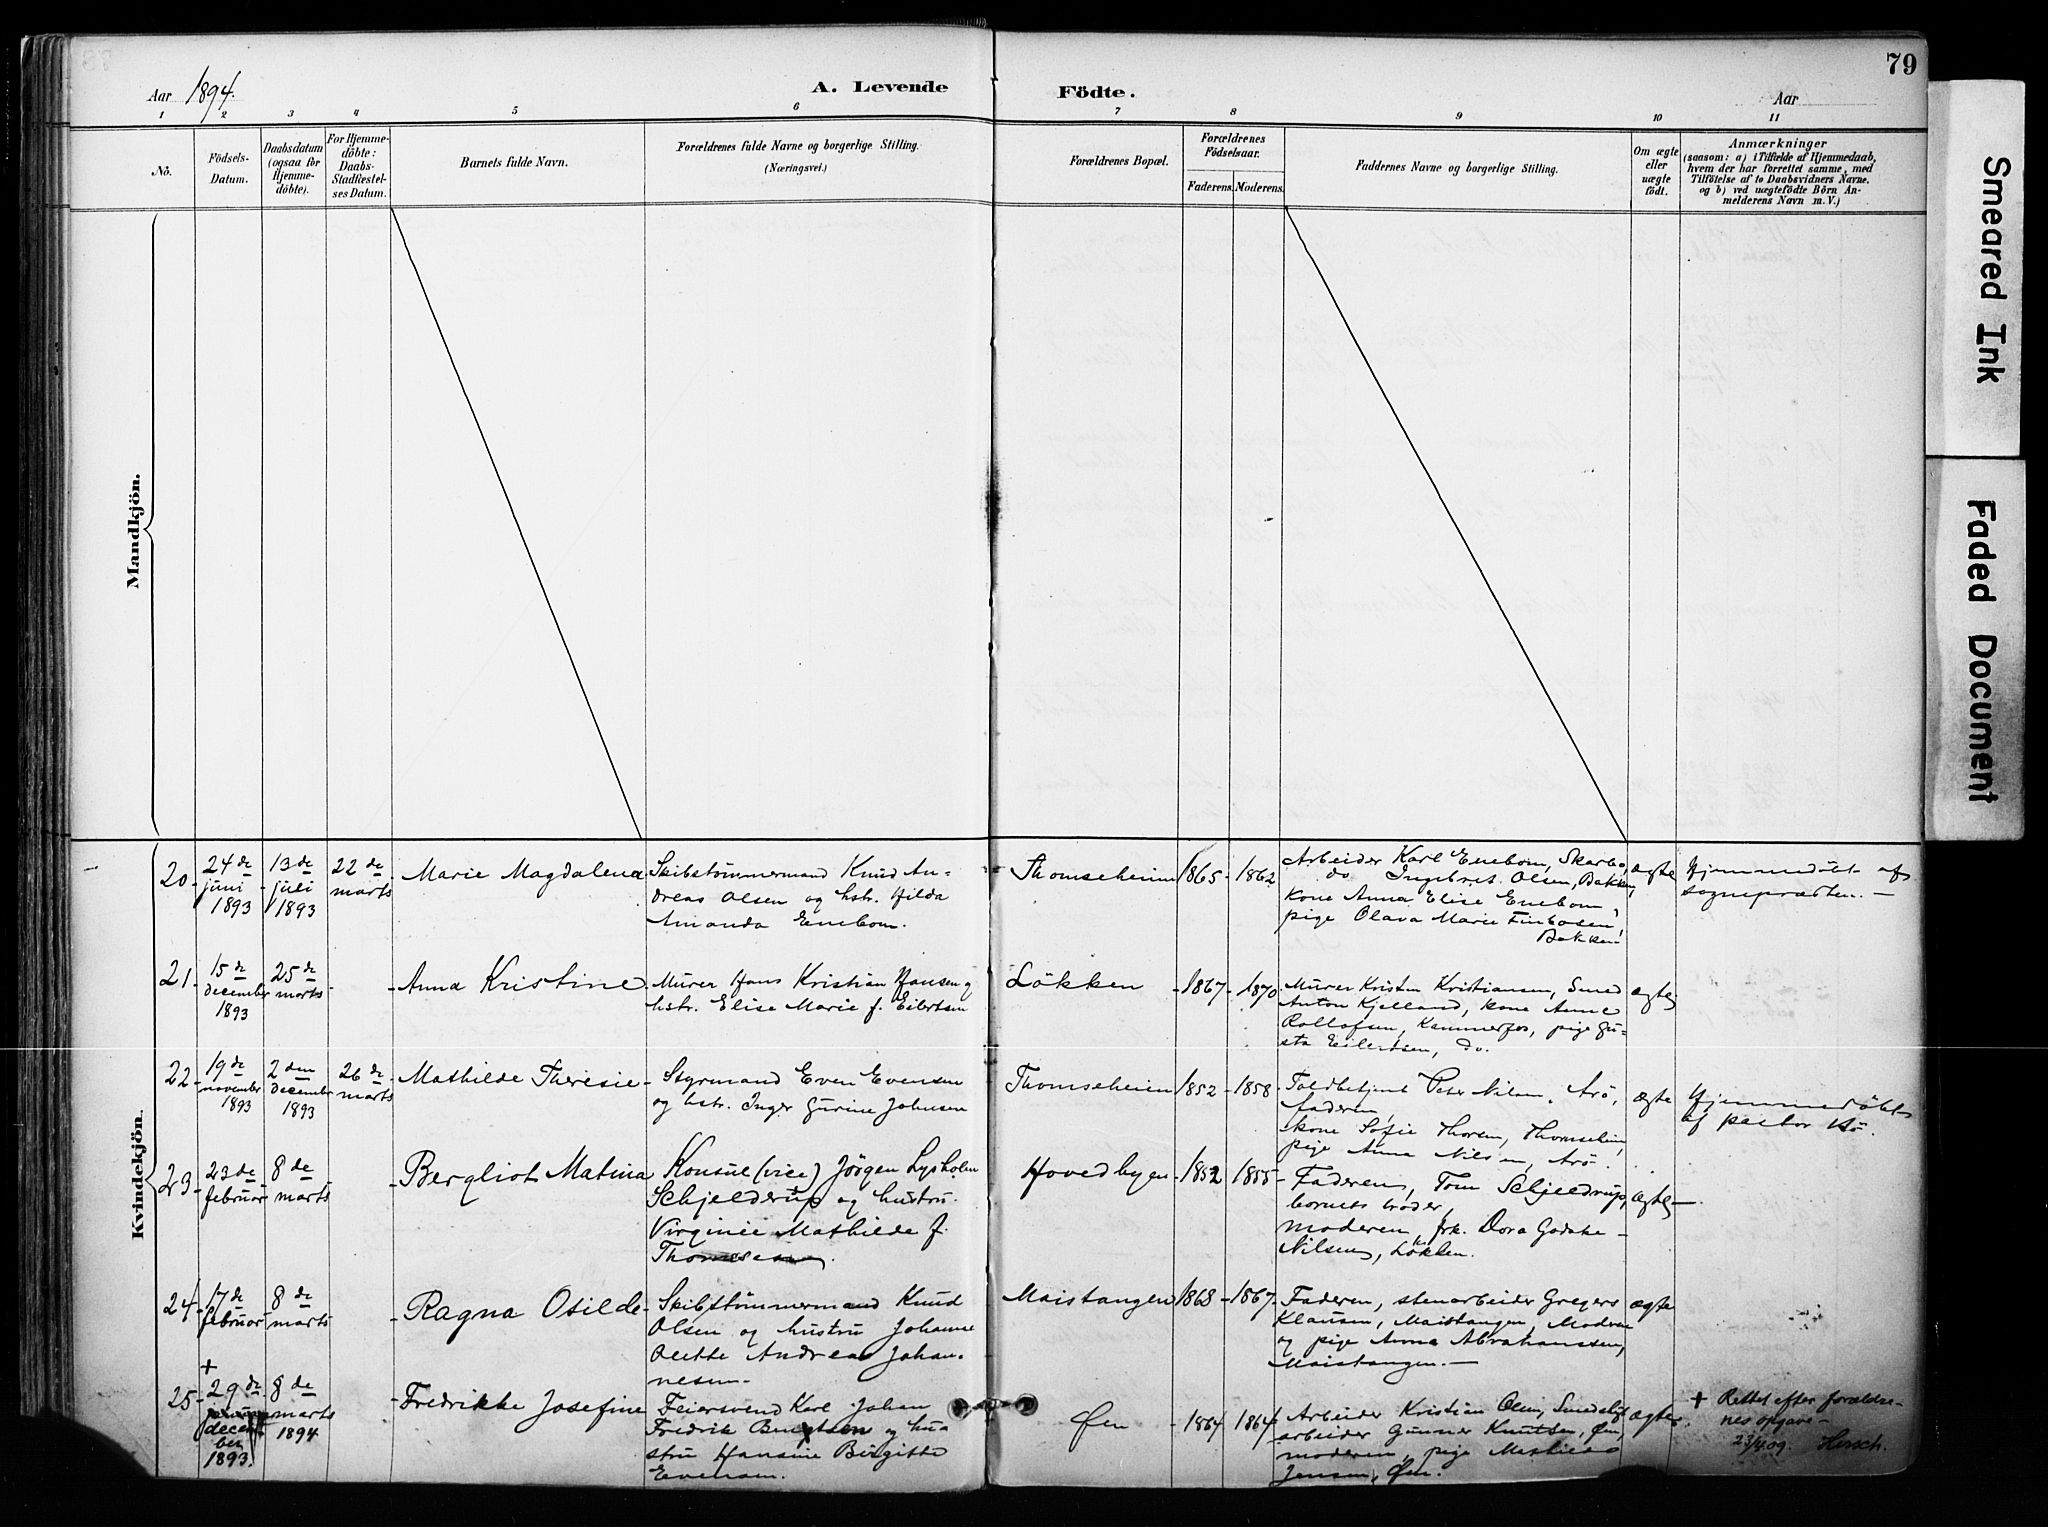 79
Aar 1894.
A. Levende Födte.
Aar
1 2 3 4 5 6 7 8 9 10 11
No.
Födsels-
Datum.
Daabsdatum
(ogsaa for
Hjemme-
döbte).
For Hjemme-
döbte:
Daabs-
Stadfæstel-
ses Datum.
Barnets fulde Navn.
Forældrenes fulde Navne og borgerlige Stilling.
(Næringsvei.)
Forældrenes Bopæl.
Forældrenes
Födselsaar.
Faderens. Moderens.
Faddernes Navne og borgerlige Stilling.
Om ægte
eller
uægte
födt.
Anmærkninger
(saasom: a) i Tilfælde af Hjemmedaab,
hvem der har forrettet samme, med
Tilföielse af to Daabsvidners Navne,
og b) ved uægtefödte Börn An-
melderens Navn m. V.)
Mandkjön.
Kvindekjön.
20
24 de
juni
1893
13 de
juli
1893
22 de
marts
Marie Magdalena
Skibstömmermand Knud An-
dreas Olsen og hstr. Hilda
Amanda Enebom.
Thomseheien
1865 - 1862
Arbeider Karl Enebom, Skarbo,
do. Ingebret Olsen, Bakken,
kone Anna Elise Enebom,
pige Olava Marie
Bakken
ægte
Hjemmedöbt af
sognepræsten. -
21
15 de
december
1893
25 de
marts
Anna Kristine
Murer Hans Kristian Hansen og
hstr. Elise Marie f. Eilertsen
Lökken
1867 - 1870
Murer Kristen Kristiansen, Smed
Anton Kjelland, kone Anne
Rollofsen, Kammerfos, pige Gu-
sta Eilertsen, do.
ægte
22
19 de
november
1893
2 den
december
1893
26 de
marts
Mathilde Theresie
Styrmand Even Evensen
og hstr. Inger Gurine Johnsen
Thomseheien
1852 - 1858
Toldbetjent Peter Nilsen, Arö,
faderen,
kone Sofie Thorsen, Thomseheien,
pige Anna Nilsen, Arö.
ægte
Hjemmedöbt
af pastor Bö.
23
23 de
februar
8 de
marts
Bergliot Matina
Konsul (vice) Jörgen Lysholm
Schjelderup og hustru
Virginie Mathilde f.
Thomesen.
Hovedbyen
1852 - 1855
Faderen, Tom Schjelderup,
barnets broder,
moderen, frk. Dora Godske-
Nilsen, Lökken.
ægte
24
17 de
februar
8 de
marts
Ragna Otilde
Skibstömmermand Knud
Olsen og hustru Johanne
Olette Andrea Johan-
nesen.
Maistangen
1868 - 1867
Faderen, stenarbeider Gregers
Klausen, Maistangen, Moderen
og pige Anna Abrahamsen,
Maistangen. -
ægte
25
+
29 de
decem-
ber
1893.
8 de
marts
1894
Fredrikke Josefine
Feiersvend Karl Johan
Fredrik Bentsen og hu-
stru Hansine Birgitte
Evensen.
Öen
1864 1864
Arbeider Kristian Olsen, Smedslöf,
arbeider Gunner Knutsen, Öen,
moderen, pige Mathilde
Jensen, Öen.
ægte
+ Rettet efter forældre-
nes opgave -
23/4 09. Hersch.
Smeared Ink
Faded Document